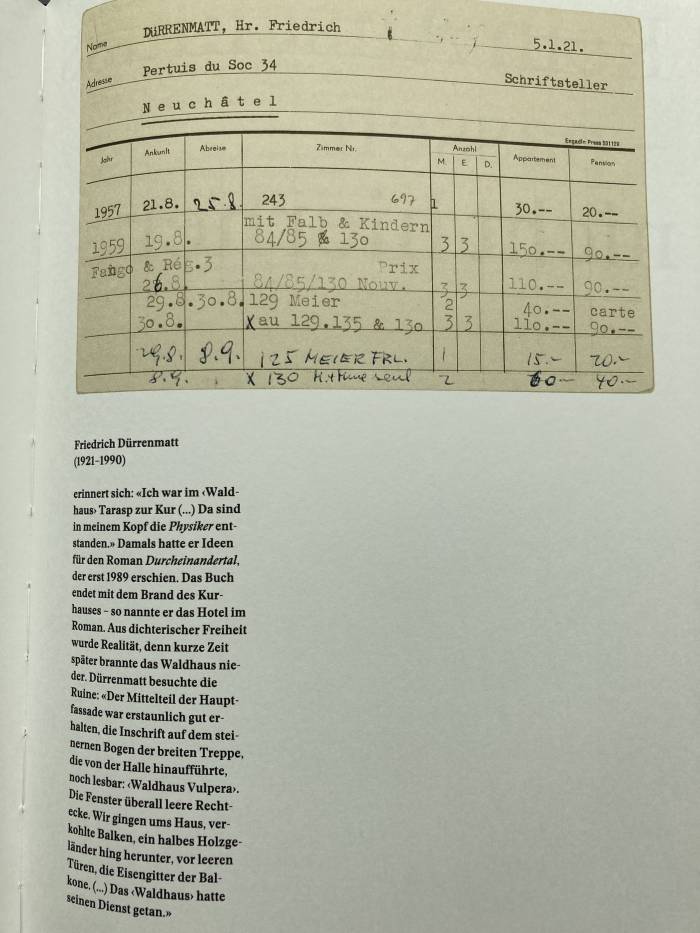 Name DÜRRENMATT, Hr. Friedrich 5.1.21.
Adresse Pertuis du Soc 34 Schriftsteller
Neuchâtel
Engadin Press
Jahr Ankunft Abreise Zimmer Nr. Anzahl Appartement Pension
M. E. D.
1957 21.8. 25.8. 243 697 1 30.-- 20.--
mit Falb & Kindern
1959 19.8. 84/85 & 130 3 3 150.-- 90.--
Fango & Rég.3 Prix
26.8. 84/85/130 Nouv. 3 3 110.-- 90.--
29.8. 30.8. 129 Meier 2 40.-- carte
30.8. X au 129.135 & 130 3 3 110.-- 90.--
29.8. 8.9. 125 MEIER FRL. 1 15.- 20.-
8.9. X 130 2 60-- 40.--
Friedrich Dürrenmatt
(1921–1990)
erinnert sich: «Ich war im ‹Wald-
haus› Tarasp zur Kur (...) Da sind
in meinem Kopf die Physiker ent-
standen.» Damals hatte er Ideen
für den Roman Durcheinandertal,
der erst 1989 erschien. Das Buch
endet mit dem Brand des Kur-
hauses – so nannte er das Hotel im
Roman. Aus dichterischer Freiheit
wurde Realität, denn kurze Zeit
später brannte das Waldhaus nie-
der. Dürrenmatt besuchte die
Ruine: «Der Mittelteil der Haupt-
fassade war erstaunlich gut er-
halten, die Inschrift auf dem stei-
nernen Bogen der breiten Treppe,
die von der Halle hinaufführte,
noch lesbar: ‹Waldhaus Vulpera›.
Die Fenster überall leere Recht-
ecke. Wir gingen ums Haus, ver-
kohlte Balken, ein halbes Holzge-
länder hing herunter, vor leeren
Türen, die Eisengitter der Bal-
kone. (...) Das ‹Waldhaus› hatte
seinen Dienst getan.»